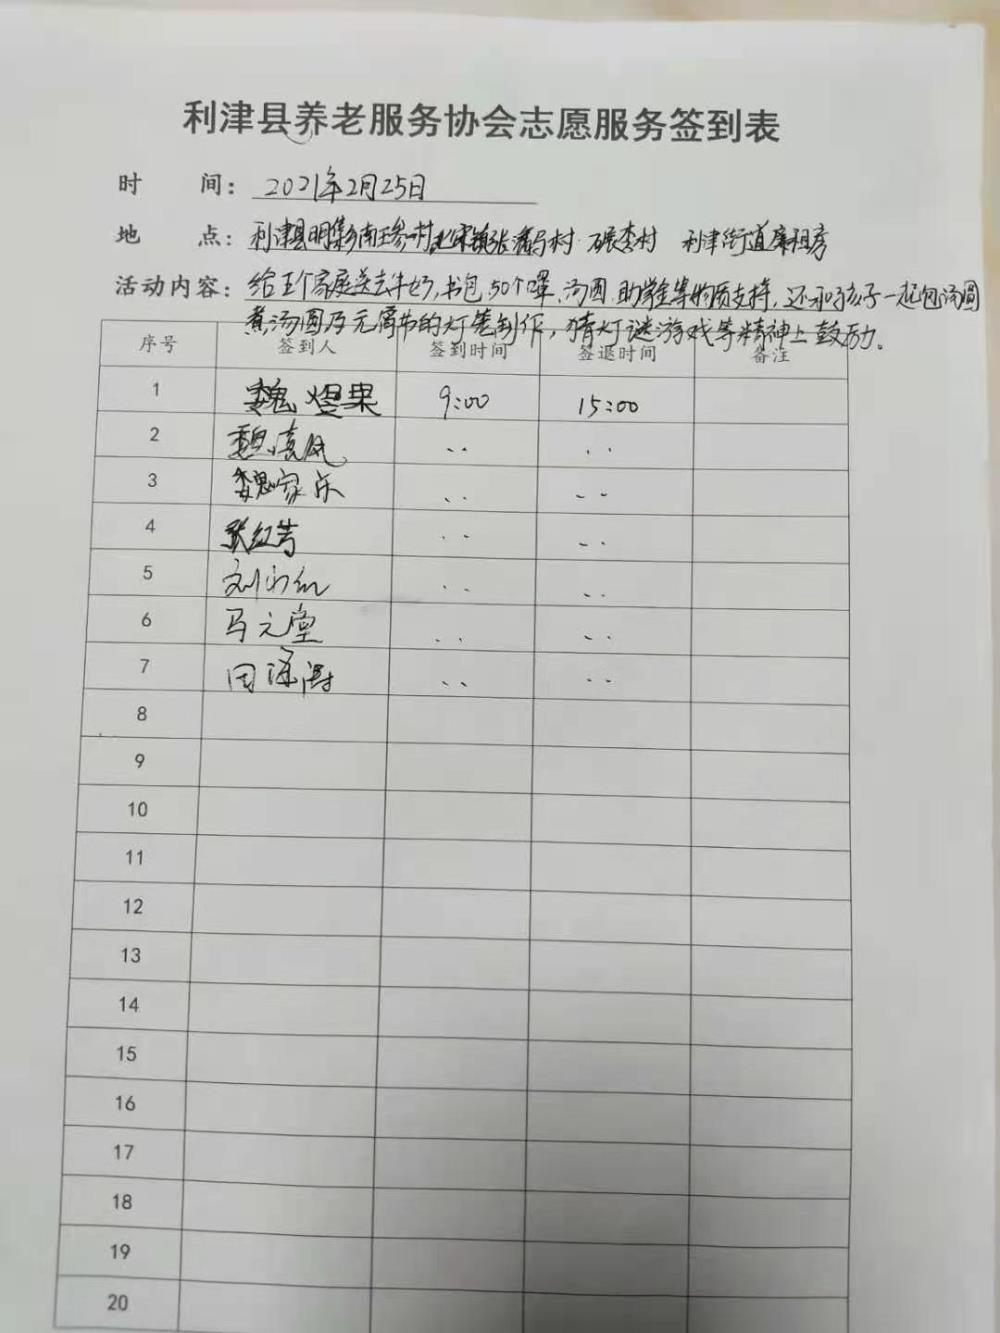 利津县养老服务协会志愿服务签到表
时 间：2021年2月25日
地 点：利津县明集乡南王参一村 北宋镇张潘马村 碾李村 利津街道廉租房
活动内容：给五个家庭送去牛奶,书包,50个口罩,汤圆,助学金等物质支持,还和孩子一起包汤圆
煮汤圆及元宵节的灯笼制作,猜灯谜游戏等精神上鼓励。
序号 签到人 签到时间 签退时间 备注
1 魏煜果 9:00 15:00
2 魏 凤 ‥ ‥
3 魏家乐 ‥ ‥
4 张红芳 ‥ ‥
5 刘 红 ‥ ‥
6 马元堂 ‥ ‥
7 田 ‥ ‥
8
9
10
11
12
13
14
15
16
17
18
19
20